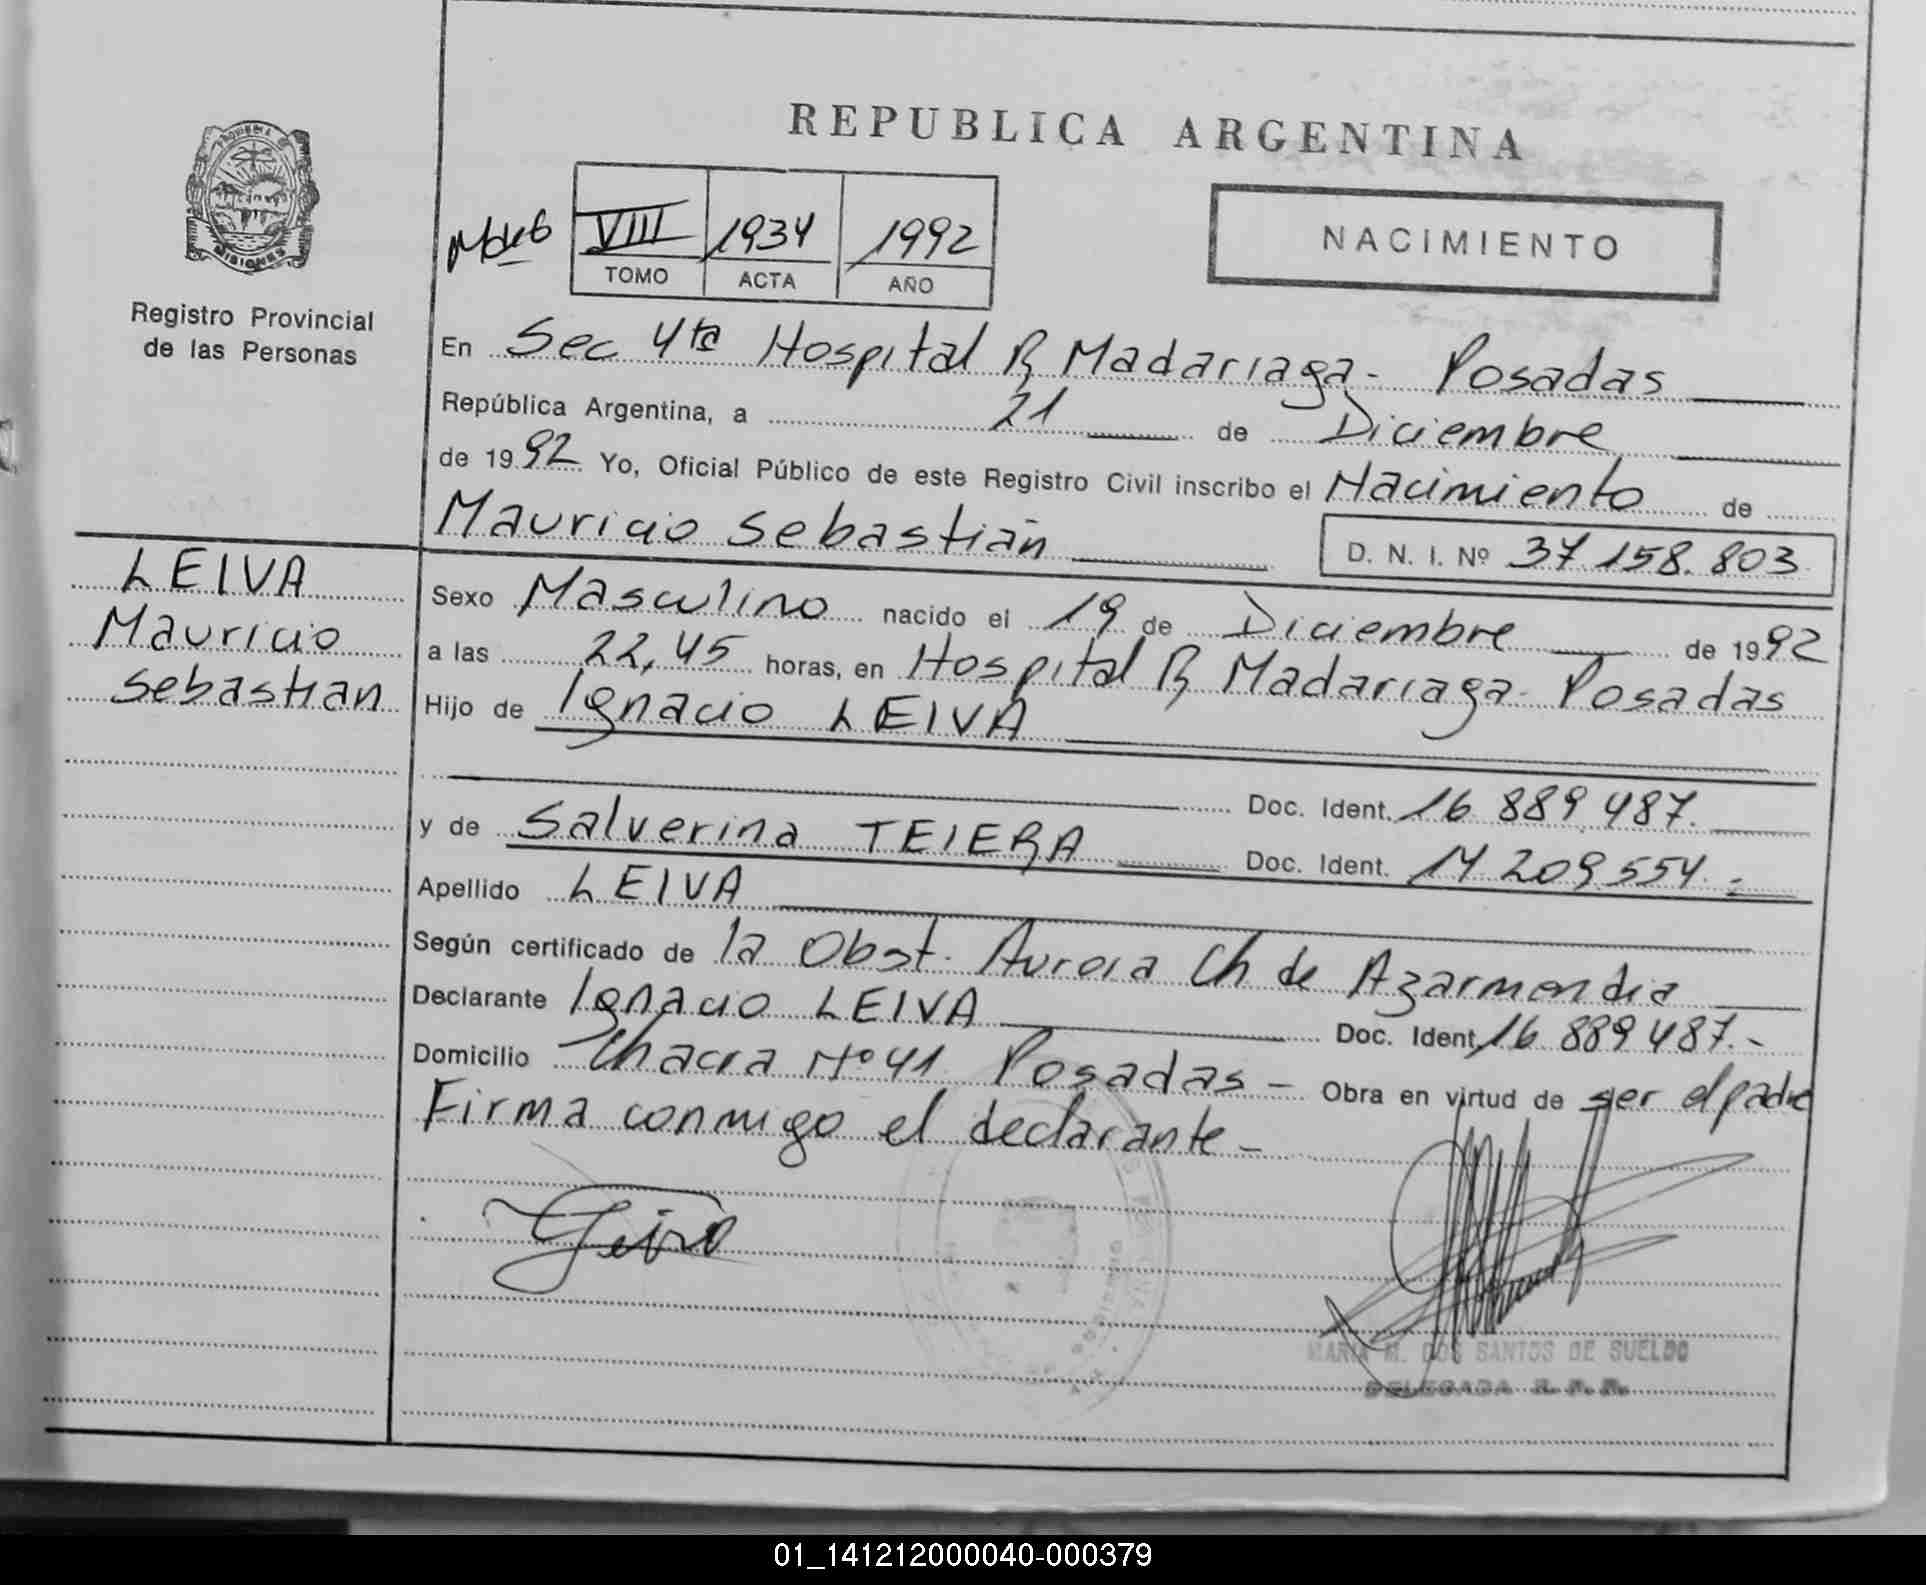 REPUBLICA ARGENTINA
VIII 1934 1992
TOMO ACTA AÑO
NACIMIENTO
PROVINCIA DE MISIONES
Registro Provincial
de las Personas
En Sec 4ta Hospital R Madariaga - Posadas
República Argentina, a 21 de Diciembre
de 1992 Yo, Oficial Público de este Registro Civil inscribo el Nacimiento de
Mauricio Sebastián D. N. I. Nº 37.158.803
LEIVA
Mauricio
Sebastian
Sexo Masculino nacido el 19 de Diciembre de 1992
a las 22,45 horas, en Hospital R Madariaga - Posadas
Hijo de Ignacio LEIVA
Doc. Ident. 16.889.487.
y de Salverina TEIERA Doc. Ident. 14.209.554.-
Apellido LEIVA
Según certificado de la Obst. Aurora Ch de Azarmendia
Declarante Ignacio LEIVA Doc. Ident. 16.889.487.-
Domicilio Chacra Nº 41 Posadas - Obra en virtud de ser el padre
Firma conmigo el declarante -
MARIA M. DOS SANTOS DE SUELDO
DELEGADA R. P. P.
01_141212000040-000379